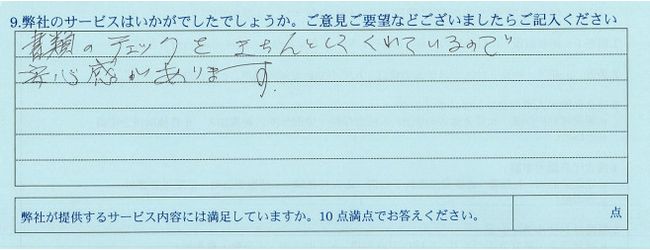 9.弊社のサービスはいかがでしたでしょうか。ご意見ご要望などございましたらご記入ください
書類のチェックをきちんとしてくれているので
安心感があります。
弊社が提供するサービス内容には満足していますか。10点満点でお答えください。 点